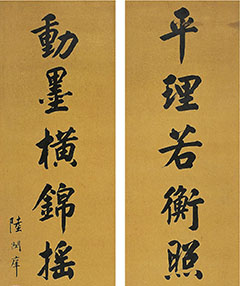 平理若衡照
動墨橫錦搖
陸潤庠